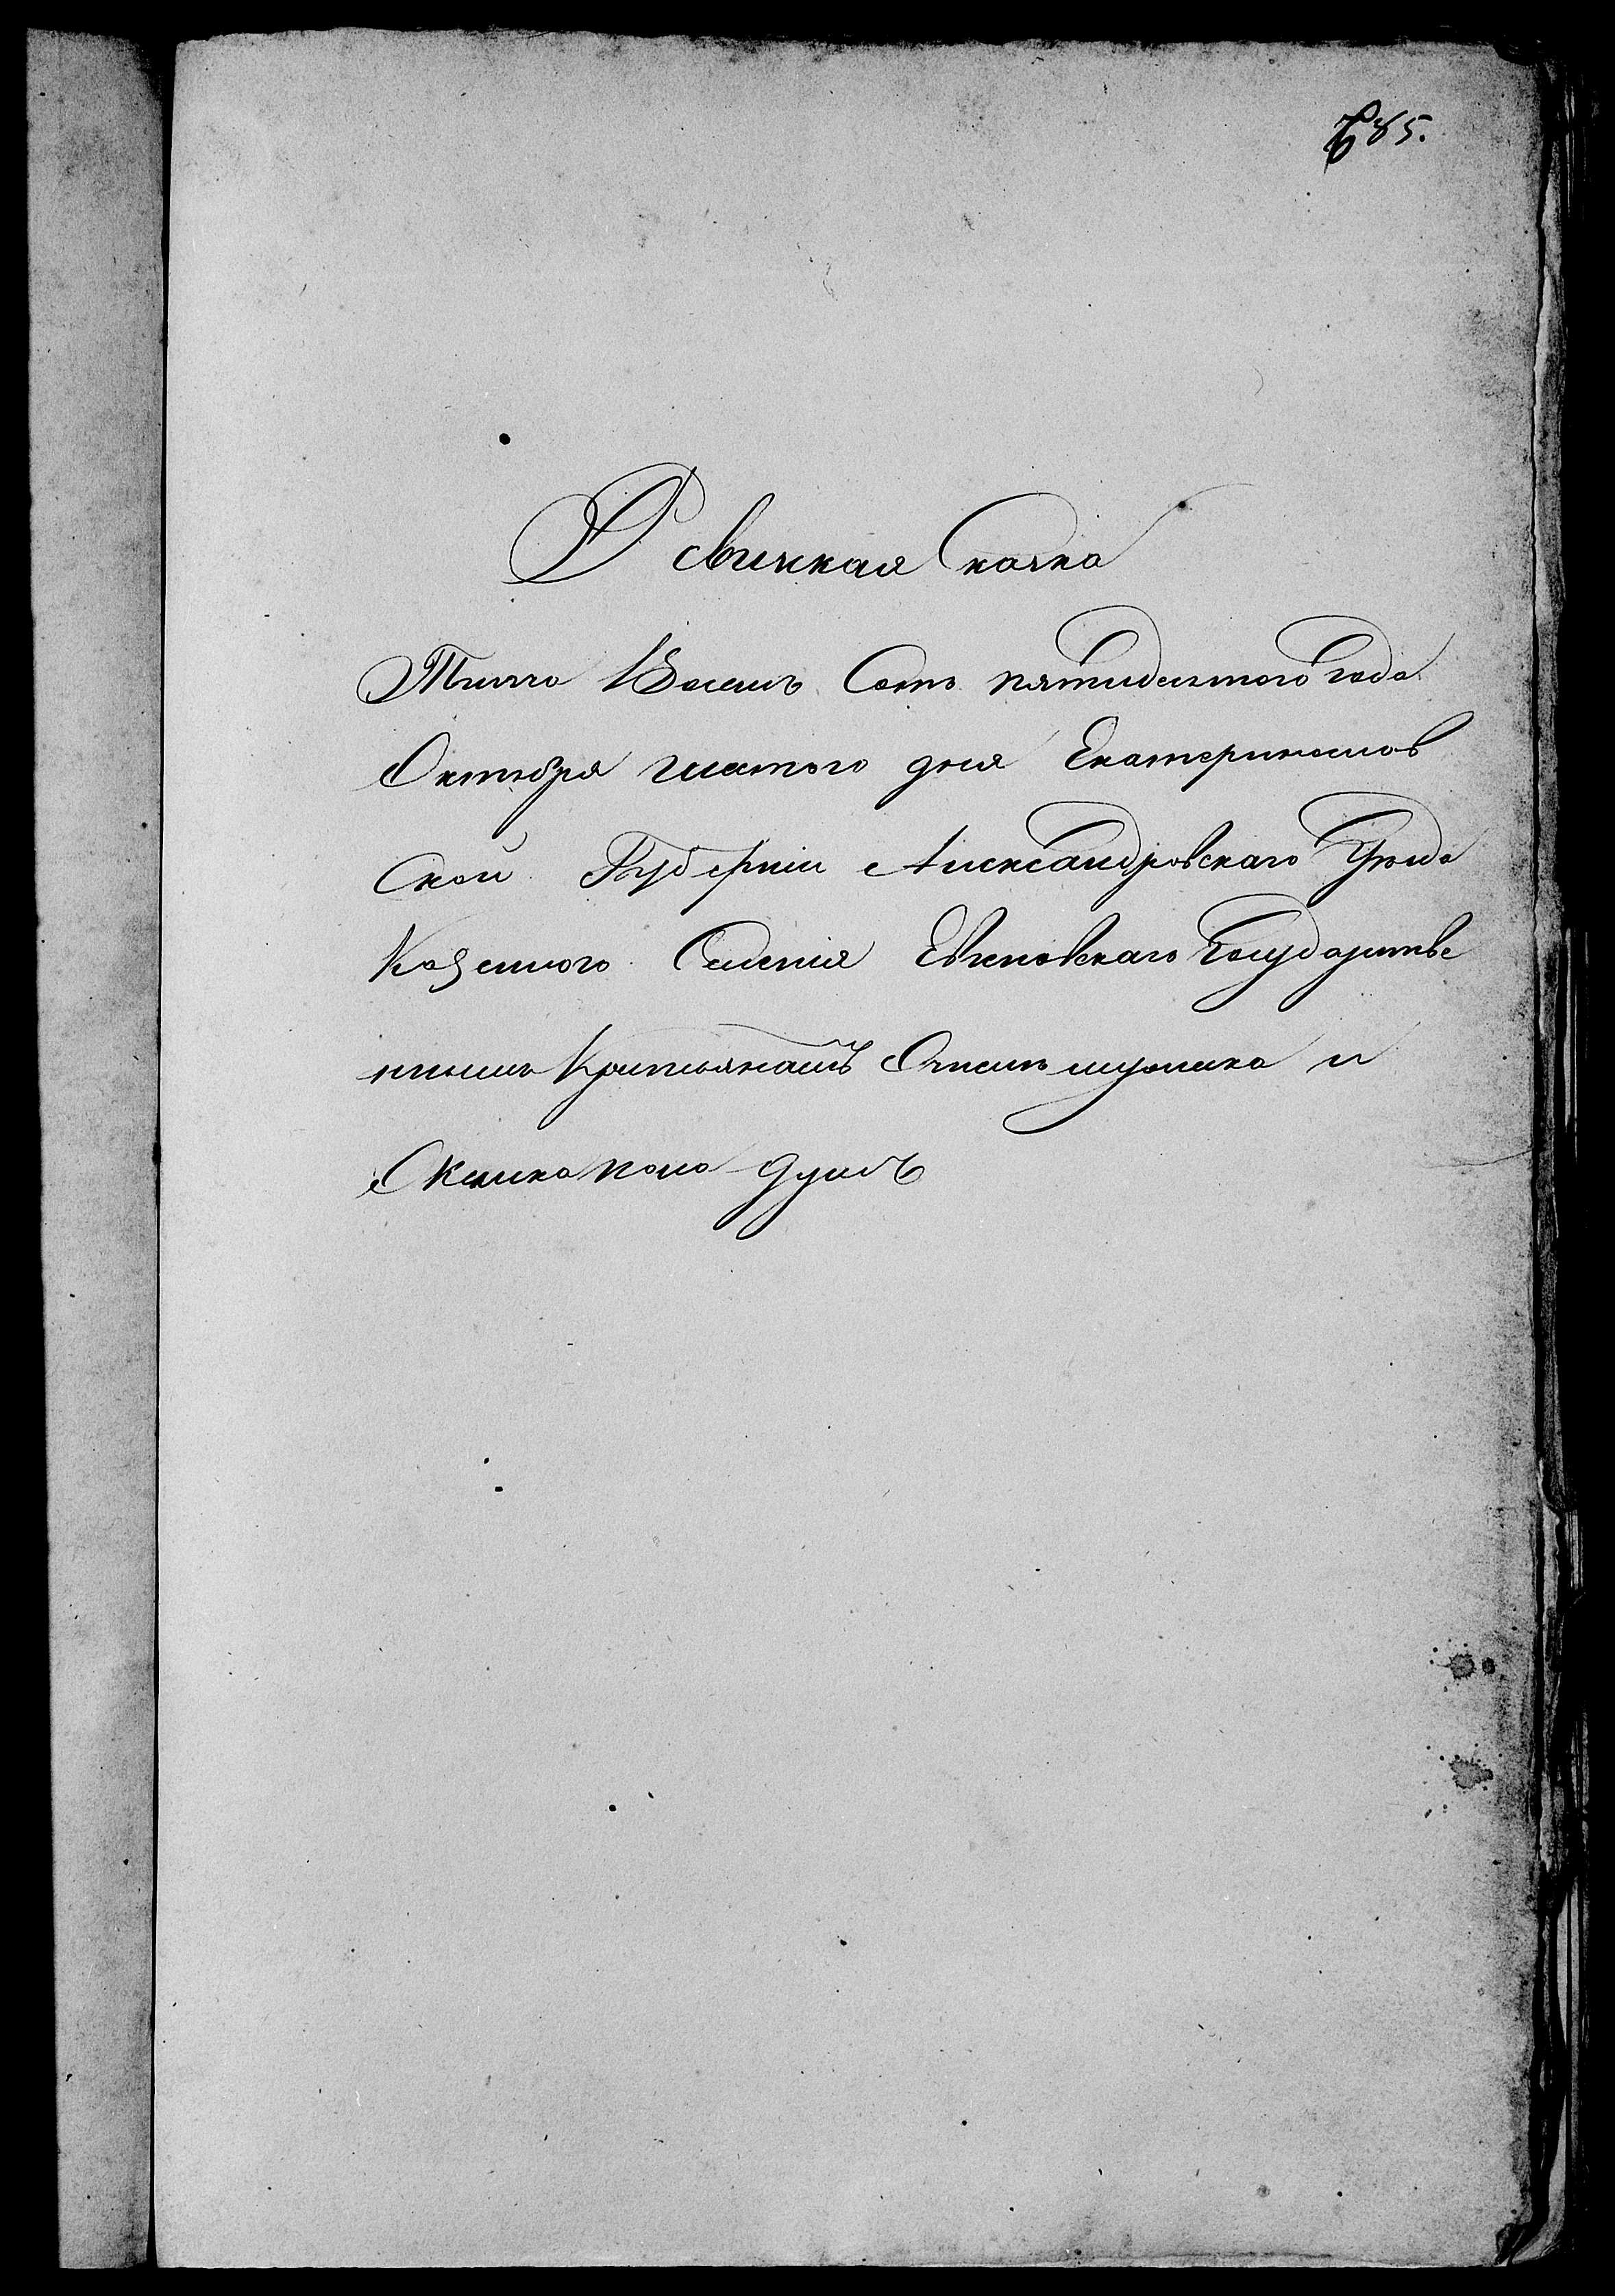 685.
Ревизкая Сказка
Тысяча Восемь Сотъ пятидесятого года
Октября шестого дня Екатеринослав
Ской Губерніи Александровскаго Уѣзда
Казенного Селенія Государстве
ннымъ Крестьянамъ Отомъ мужеска и
женска пола душъ